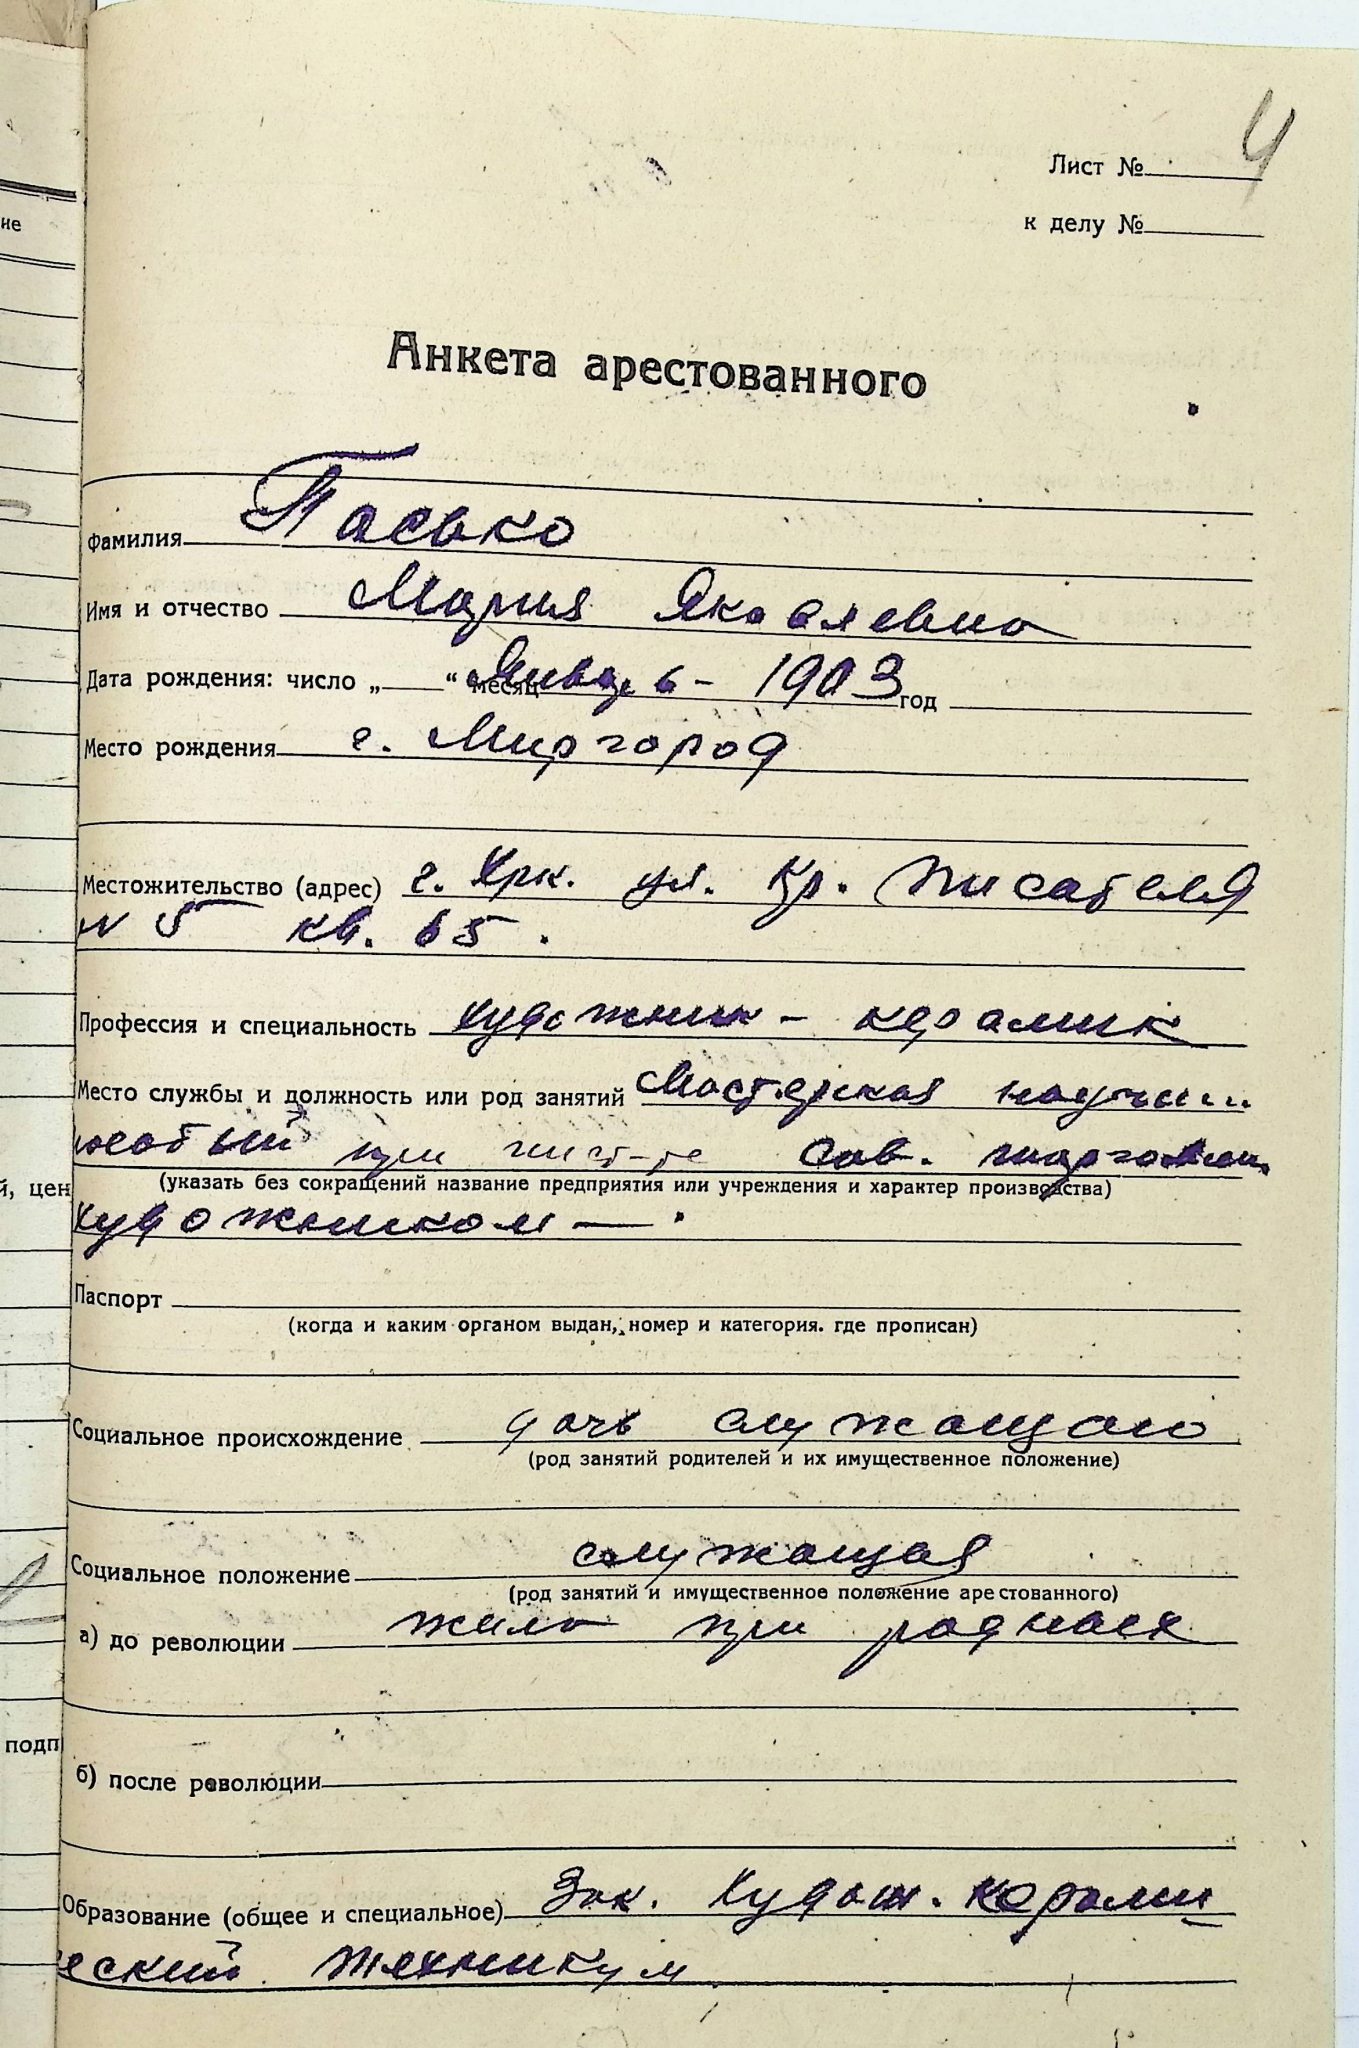 не
й, цен
подп
4
Лист №
к делу №
Анкета арестованного
Фамилия Пасько
Имя и отчество Мария Яковлевна
Дата рождения: число „ “ месяц Январь - 1903 год
Место рождения г. Миргород
Местожительство (адрес) г. Хрк. ул. Кр. Писателя
N 5 кв. 65.
Профессия и специальность художник - керамик
Место службы и должность или род занятий Мастерская
при инст-те Сов. торговли
(указать без сокращений название предприятия или учреждения и характер производства)
художником —
Паспорт
(когда и каким органом выдан, номер и категория. где прописан)
Социальное происхождение дочь служащего
(род занятий родителей и их имущественное положение)
Социальное положение служащая
(род занятий и имущественное положение арестованного)
а) до революции жила при родных
б) после революции
Образование (общее и специальное) Зак. Худож. керами
ческий техникум